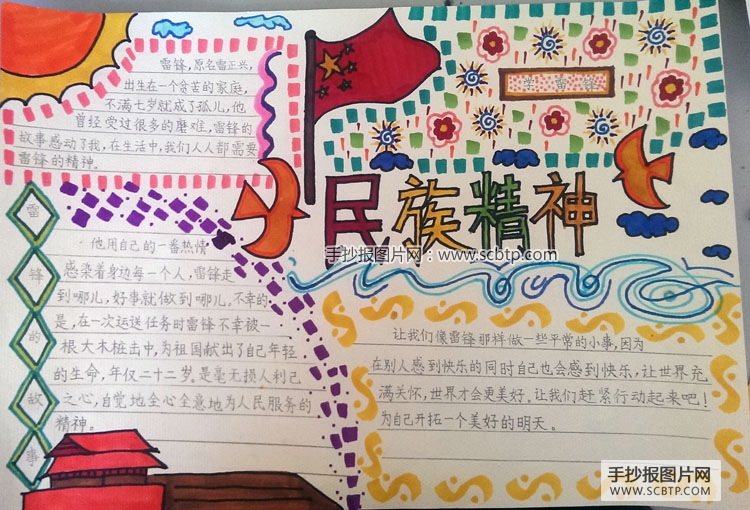 雷锋,原名雷正兴,
出生在一个贫苦的家庭,
不满七岁就成了孤儿,他
曾经受过很多的磨难,雷锋的
故事感动了我,在生活中,我们人人都需要
雷锋的精神。
学雷锋
民族精神
手抄报图片网:www.scbtp.com
雷
锋
的
故
事
他用自己的一番热情
感染着身边每一个人,雷锋走
到哪儿,好事就做到哪儿。不幸的
是,在一次运送任务时雷锋不幸被一
根大木桩击中,为祖国献出了自己年轻
的生命,年仅二十二岁。是毫无损人利己
之心,自觉地全心全意地为人民服务的
精神。
让我们像雷锋那样做一些平常的小事,因为
在别人感到快乐的同时自己也会感到快乐,让世界充
满关怀,世界才会更美好。让我们赶紧行动起来吧!
为自己开拓一个美好的明天。
手抄报图片网
WWW.SCBTP.COM